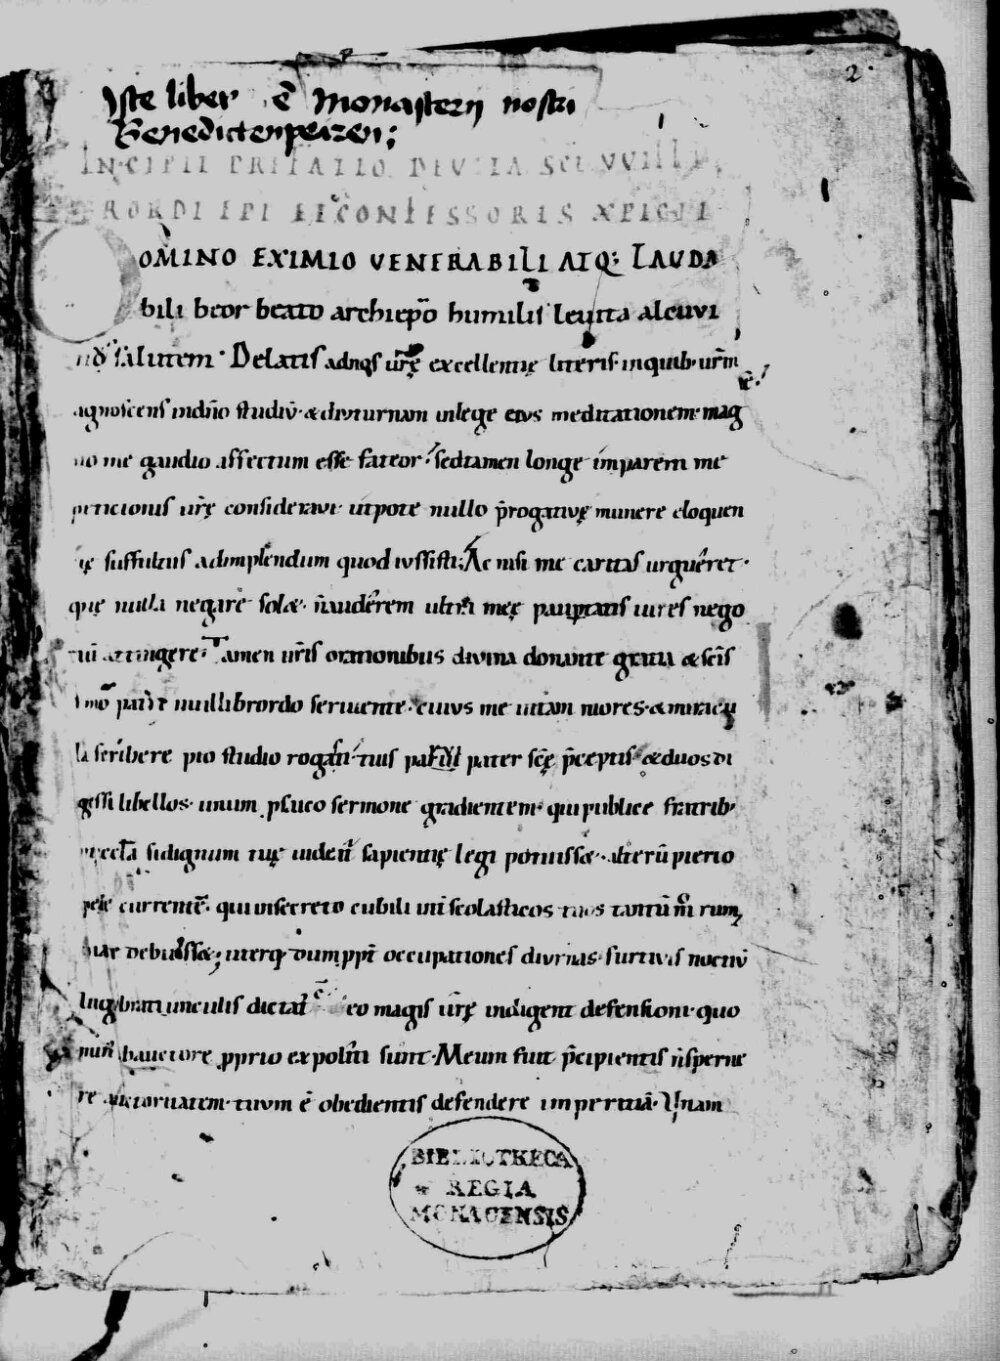 2.
Iste liber ē Monasterij nostri
Benedictenpeuren;
INCIPIT PREFATIO DE VITA SCI VVILLI
BRORDI EPI ET CONFESSORIS XPI
DOMINO EXIMIO VENERABILI ATQ; LAUDA
bili beor beato archiep̄o humilis leuita alcuvi
nꝰ salutem. Delatis ad nos ur̄ę excellentię literis. in quib. ur̄m
agnoscens in dn̄o studiū. & diuturnam in lege eius meditationem. mag
no me gaudio affectum esse fateor. sed tamen longe imparem me
peticionis ur̄ę consideraui. utpote nullo p̄rogatiuę munere eloquen
tię suffultus ad implendum quod iussisti. Ac nisi me caritas urgueret.
quę nulla negare solæ. n̄ auderem ultra meę paup̱tatis uires nego
tiū attingere. Tamen ur̄is orationibus diuina donante gratia & sc̄is
simo patre uuillibrordo seruiente. cuius me uitam mores. & miracu
la scribere pio studio rogasti. tuis parui pater sc̄ę p̄ceptis. & duos di
gessi libellos. unum p̱suco sermone gradientem. qui publice fratrib.
in eccl̄a si dignum tuę uideat̄ sapientię legi potuissæ. alterū pierio
pede currentē. qui in secreto cubili int̄ scolasticos tuos tantū m̄ rum
nari debuissæ; uterq; dum pp̄t occupationes diurnas. furtiuis noctiū
lugubratiunculis dictat̄ ē eo magis ur̄ę indigent defensioni. quo
min̄ hauctore p̱prio expoliti sunt. Meum fuit p̄cipientis n̄ sperne
re auctoritatem. tuum ē obedientis defendere imperitiā. Unam
BIBLIOTHECA
REGIA
MONACENSIS